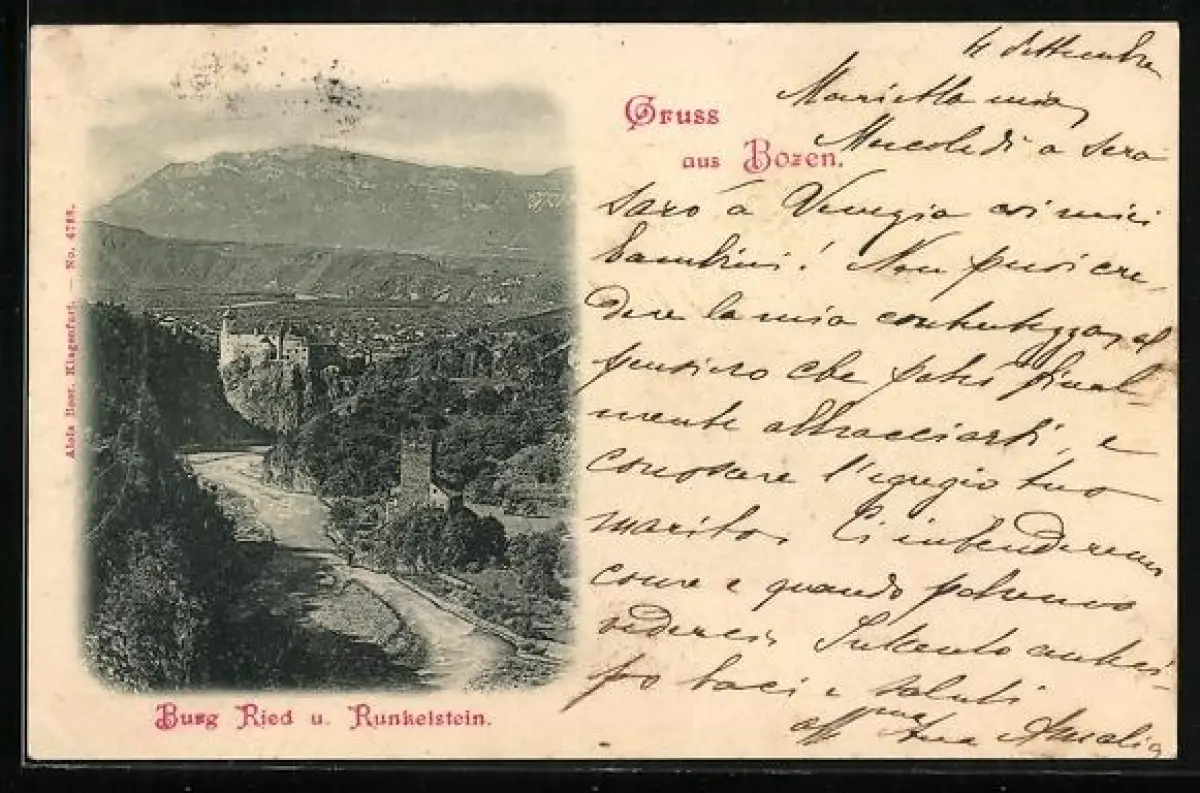 Gruss
aus Bozen.
Alois Beer, Klagenfurt. — No. 4788.
Burg Ried u. Runkelstein.
4 Settembre
Marietta mia,
Mercoledì a sera
sarò a Venezia coi miei
bambini! Non puoi cre-
dere la mia contentezza, al
pensiero che potrò final-
mente abbracciarti, e
conoscere l'egregio tuo
marito. Ci intenderemo
come e quando potremo
vederci. Intanto antici-
po baci e saluti
aff.ma tua Amalia